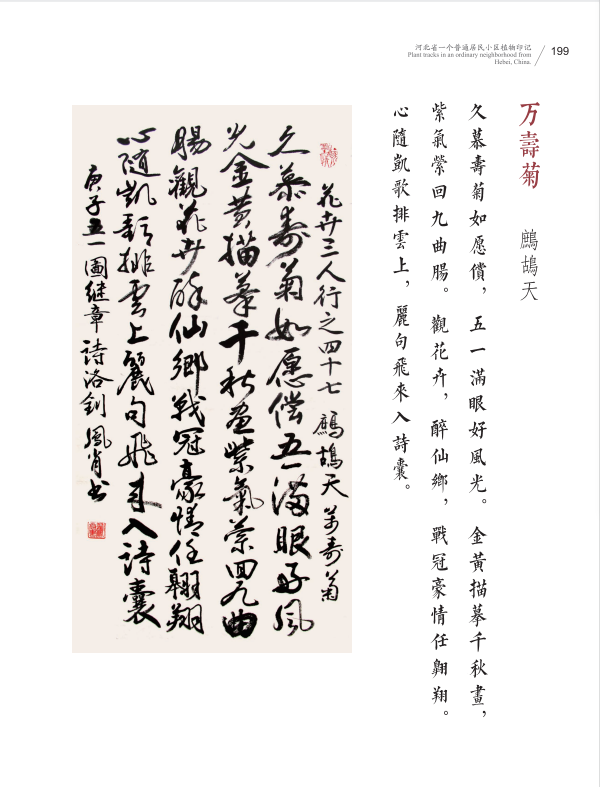 河北省一个普通居民小区植物印记
Plant tracks in an ordinary neighborhood from
Hebei, China.
199
万壽菊 鷓鴣天
久慕壽菊如愿償，五一滿眼好風光。金黃描摹千秋畫，
紫氣縈回九曲腸。觀花卉，醉仙鄉，戰冠豪情任翱翔。
心隨凱歌排雲上，麗句飛來入詩囊。
花卉三人行之四十七 鷓鴣天 萬壽菊
久慕壽菊如愿偿五一满眼好风
光金黄描摹千秋画紫氣萦回九曲
腸觀花卉醉仙鄉戰冠豪情任翱翔
心随凯歌排雲上麗句飛来入詩囊
庚子五一 圖继章 詩洛釗 風肖书